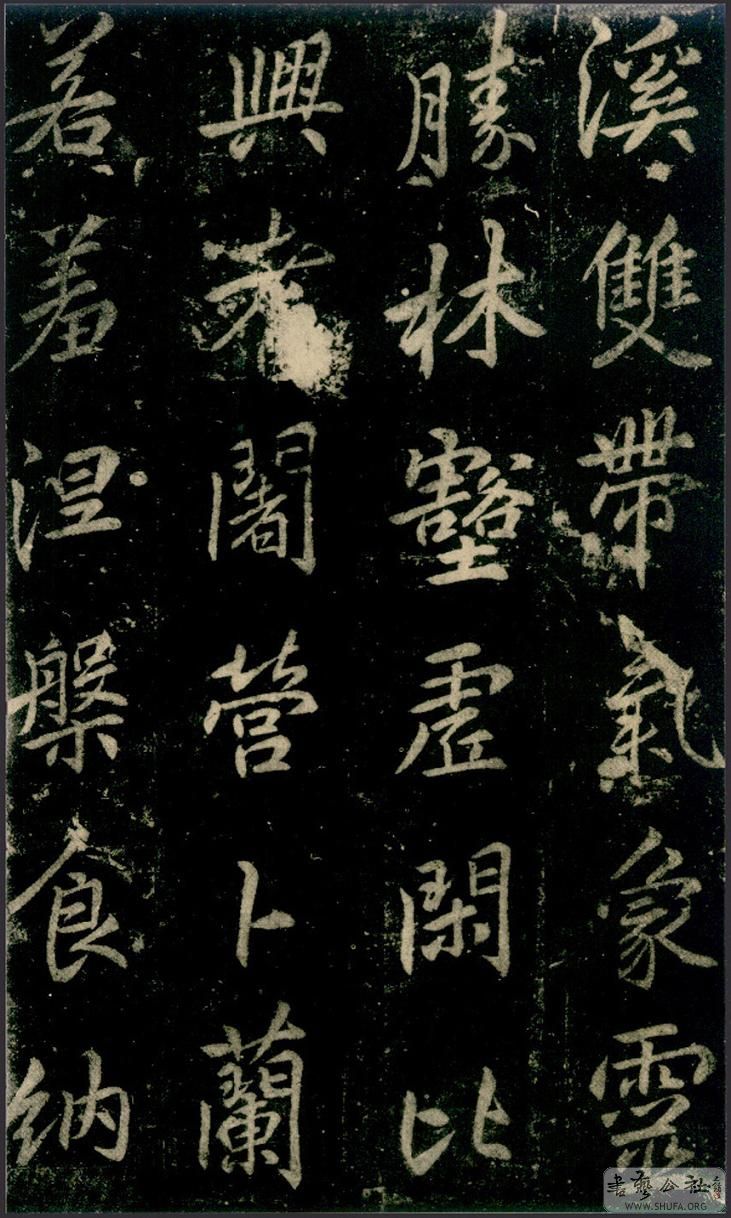 溪雙帶氣象靈
勝林壑虛閑比
興者闍營卜蘭
若羞涅槃食納
書藝公社
WWW.SHUFA.ORG